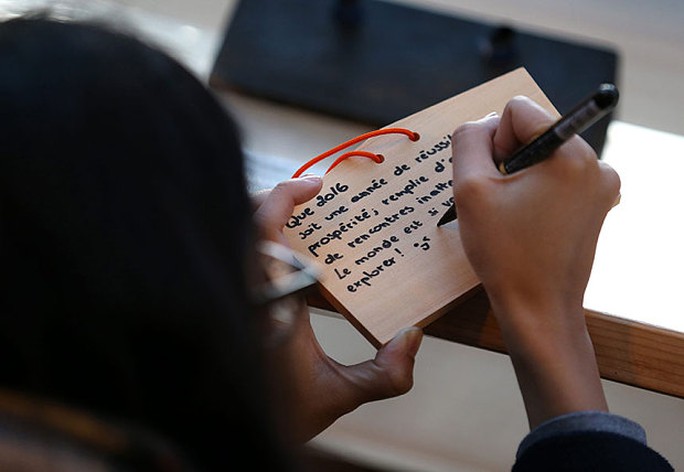 Que 2016
soit une année de réussi
prospérité, remplie d'
de rencontres inatte
Le monde est si
explorer !